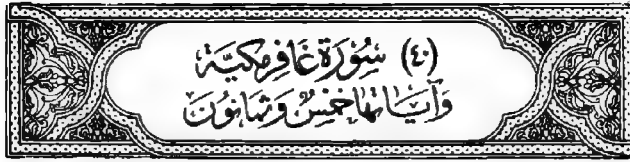 (٤٠) سُورَةُ غَافِرٍ مَكِّيَّةٌ
وَآيَاتُهَا خَمْسٌ وَثَمَانُونَ